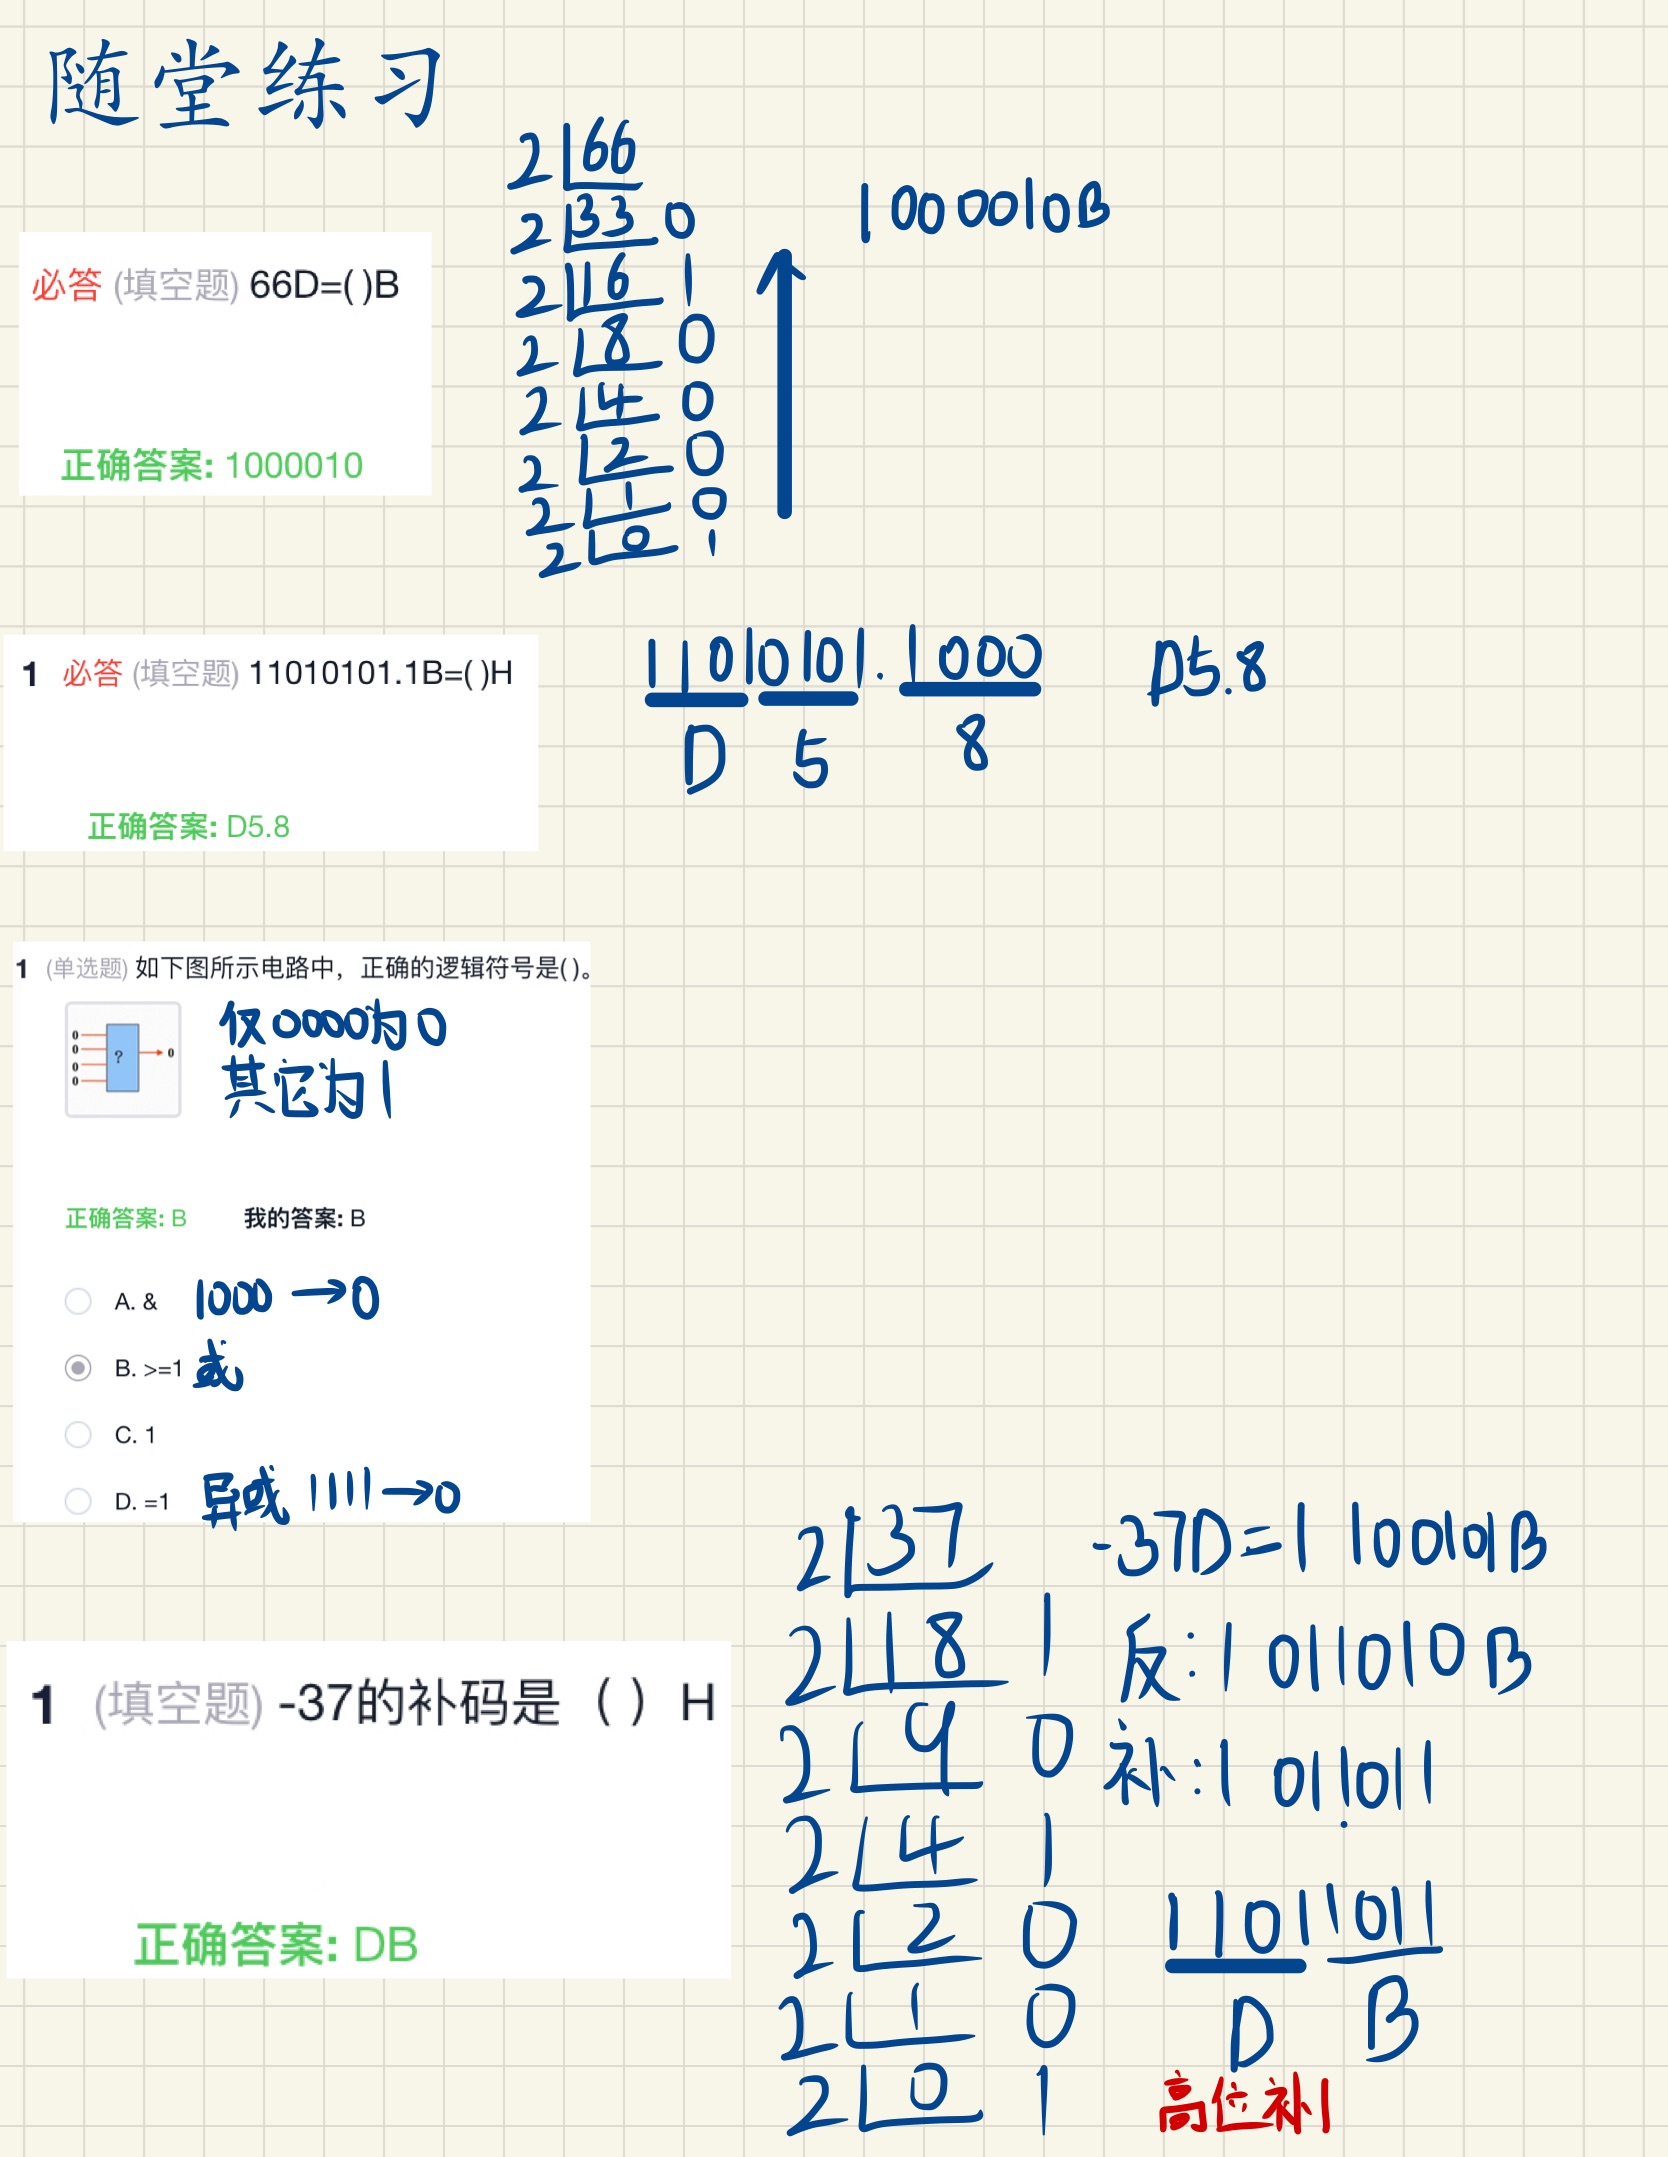 随堂练习
2 66
2 33 0
2 16 1
2 8 0
2 4 0
2 2 0
2 1 0
2 0 1
1000010B
必答 (填空题) 66D=( )B
正确答案: 1000010
1 必答 (填空题) 11010101.1B=( )H
正确答案: D5.8
11010101.1000
D 5 8
D5.8
1 (单选题) 如下图所示电路中，正确的逻辑符号是( )。
0
0
0
0
?
0
仅0000为0
其它为1
正确答案: B 我的答案: B
A. & 1000→0
B. >=1 或
C. 1
D. =1 异或 1111→0
1 (填空题) -37的补码是（ ）H
正确答案: DB
2 37
2 18 1
2 9 0
2 4 1
2 2 0
2 1 0
2 0 1
-37D=1 100101B
反:1 011010B
补:1 011011
11011011
D B
高位补1